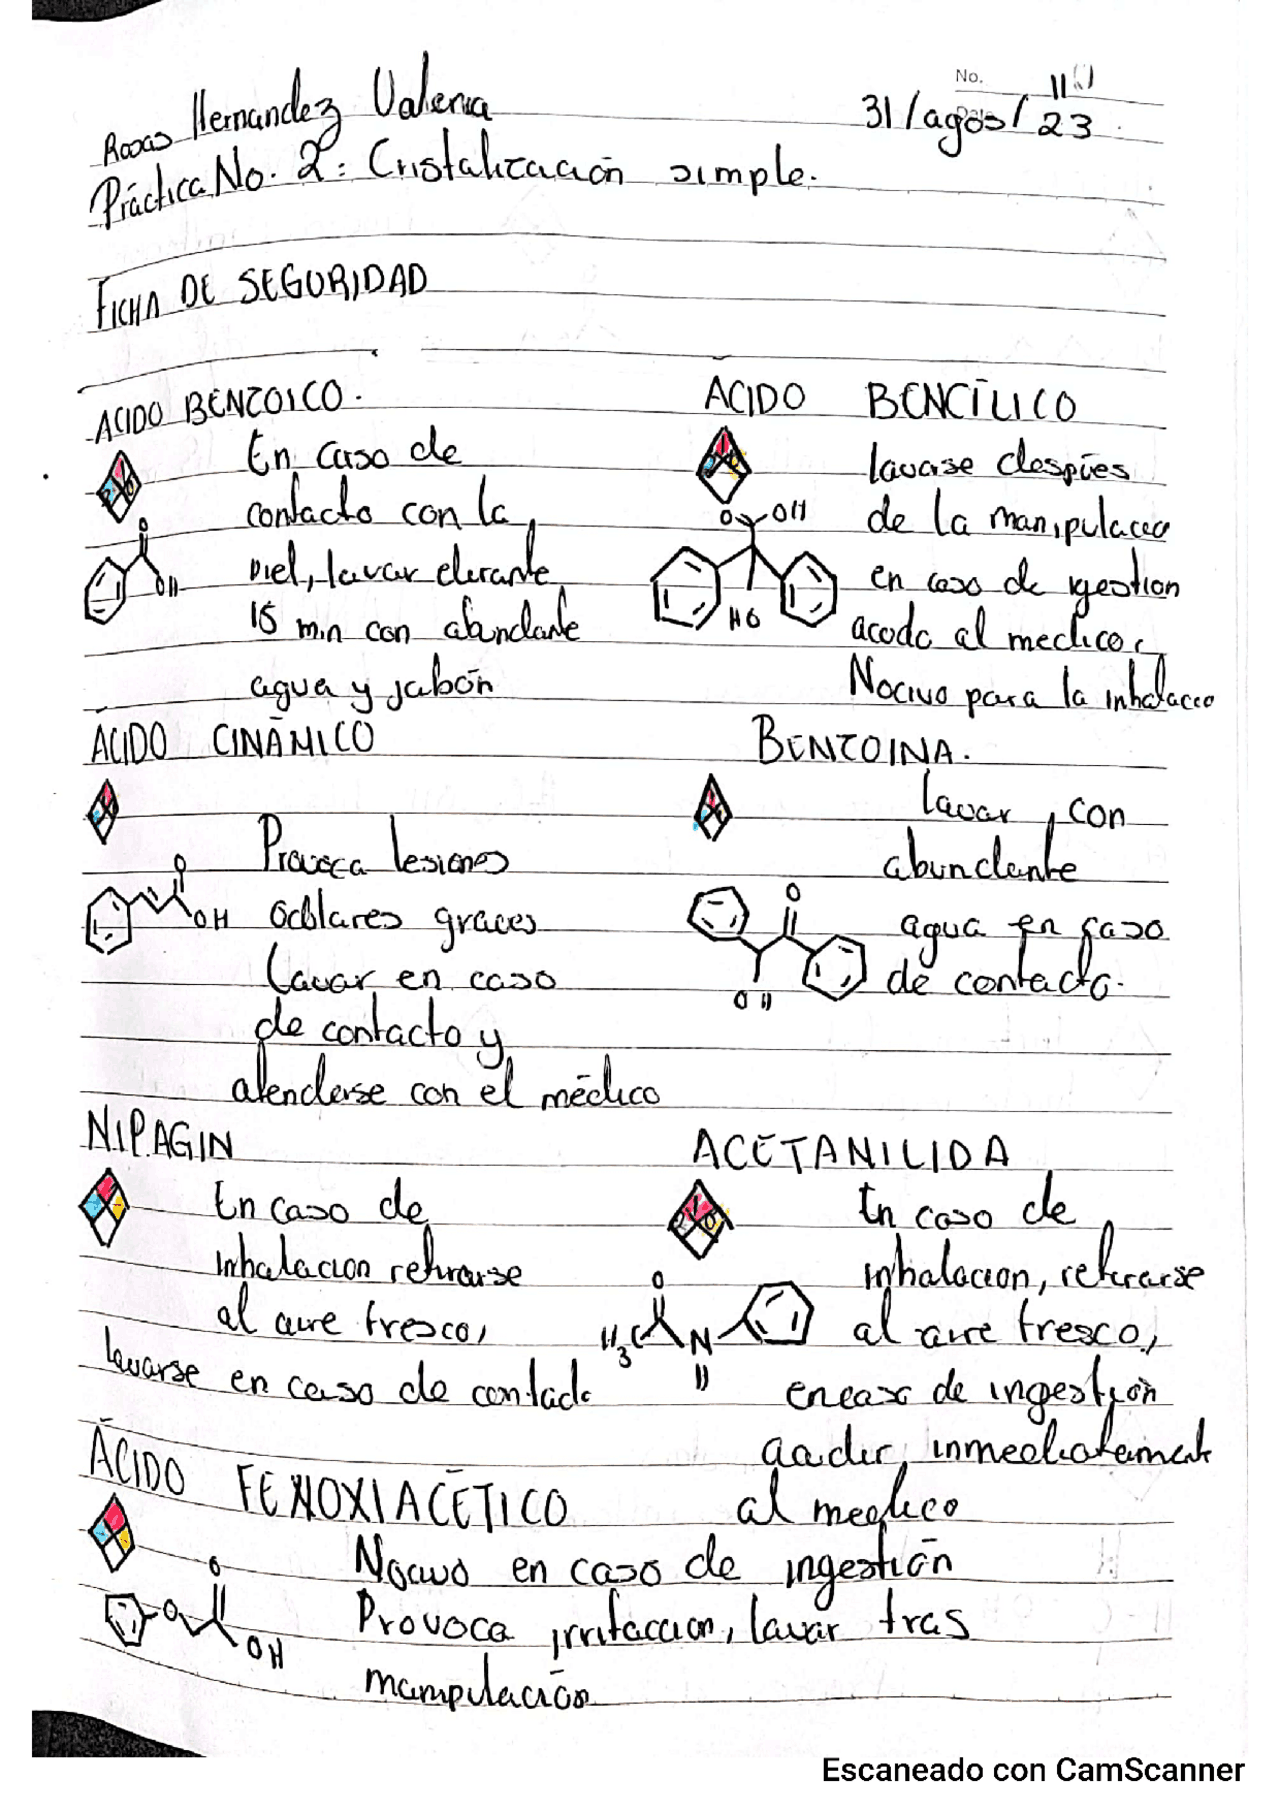 Rojas Hernandez Valeria
No.
31/agos/23
Práctica No. 2: Cristalización simple.
FICHA DE SEGURIDAD
ACIDO BENZOICO.
En caso de
contacto con la
piel, lavar durante
15 min con abundante
agua y jabón
O
OH
ÁCIDO BENCÍLICO
lavarse despúes
de la manipulacio
en caso de igestion
acoda al medico,
Nocivo para la inhalacio
O OH
HO
ÁCIDO CINÁMICO
Provoca lesiones
oculares graves
Lavar en caso
de contacto y
atenderse con el médico
O
OH
BENZOINA.
lavar con
abundante
agua en caso
de contacto.
O
OH
NIPAGIN
En caso de
inhalacion retirarse
al aire fresco,
lavarse en caso de contacto
ACETANILIDA
En caso de
inhalacion, retirarse
al aire fresco,
en caso de ingestión
acudir inmediatamente
al medico
O
H3C N
H
ÁCIDO FENOXIACÉTICO
Nocivo en caso de ingestión
Provoca irritaccion, lavar tras
manipulación
O
O
OH
Escaneado con CamScanner